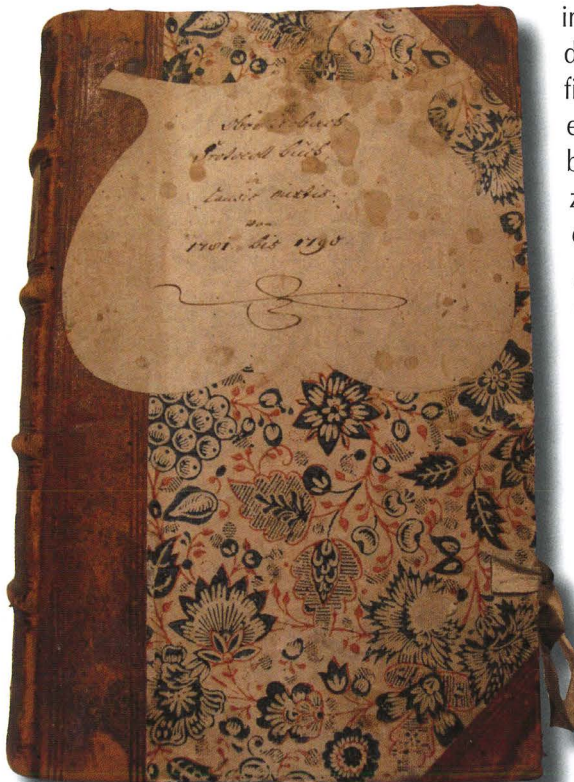 Protocoll buch
in
Causis mixtis
von
1781 bis 1790
in
d
fi
e
b
z